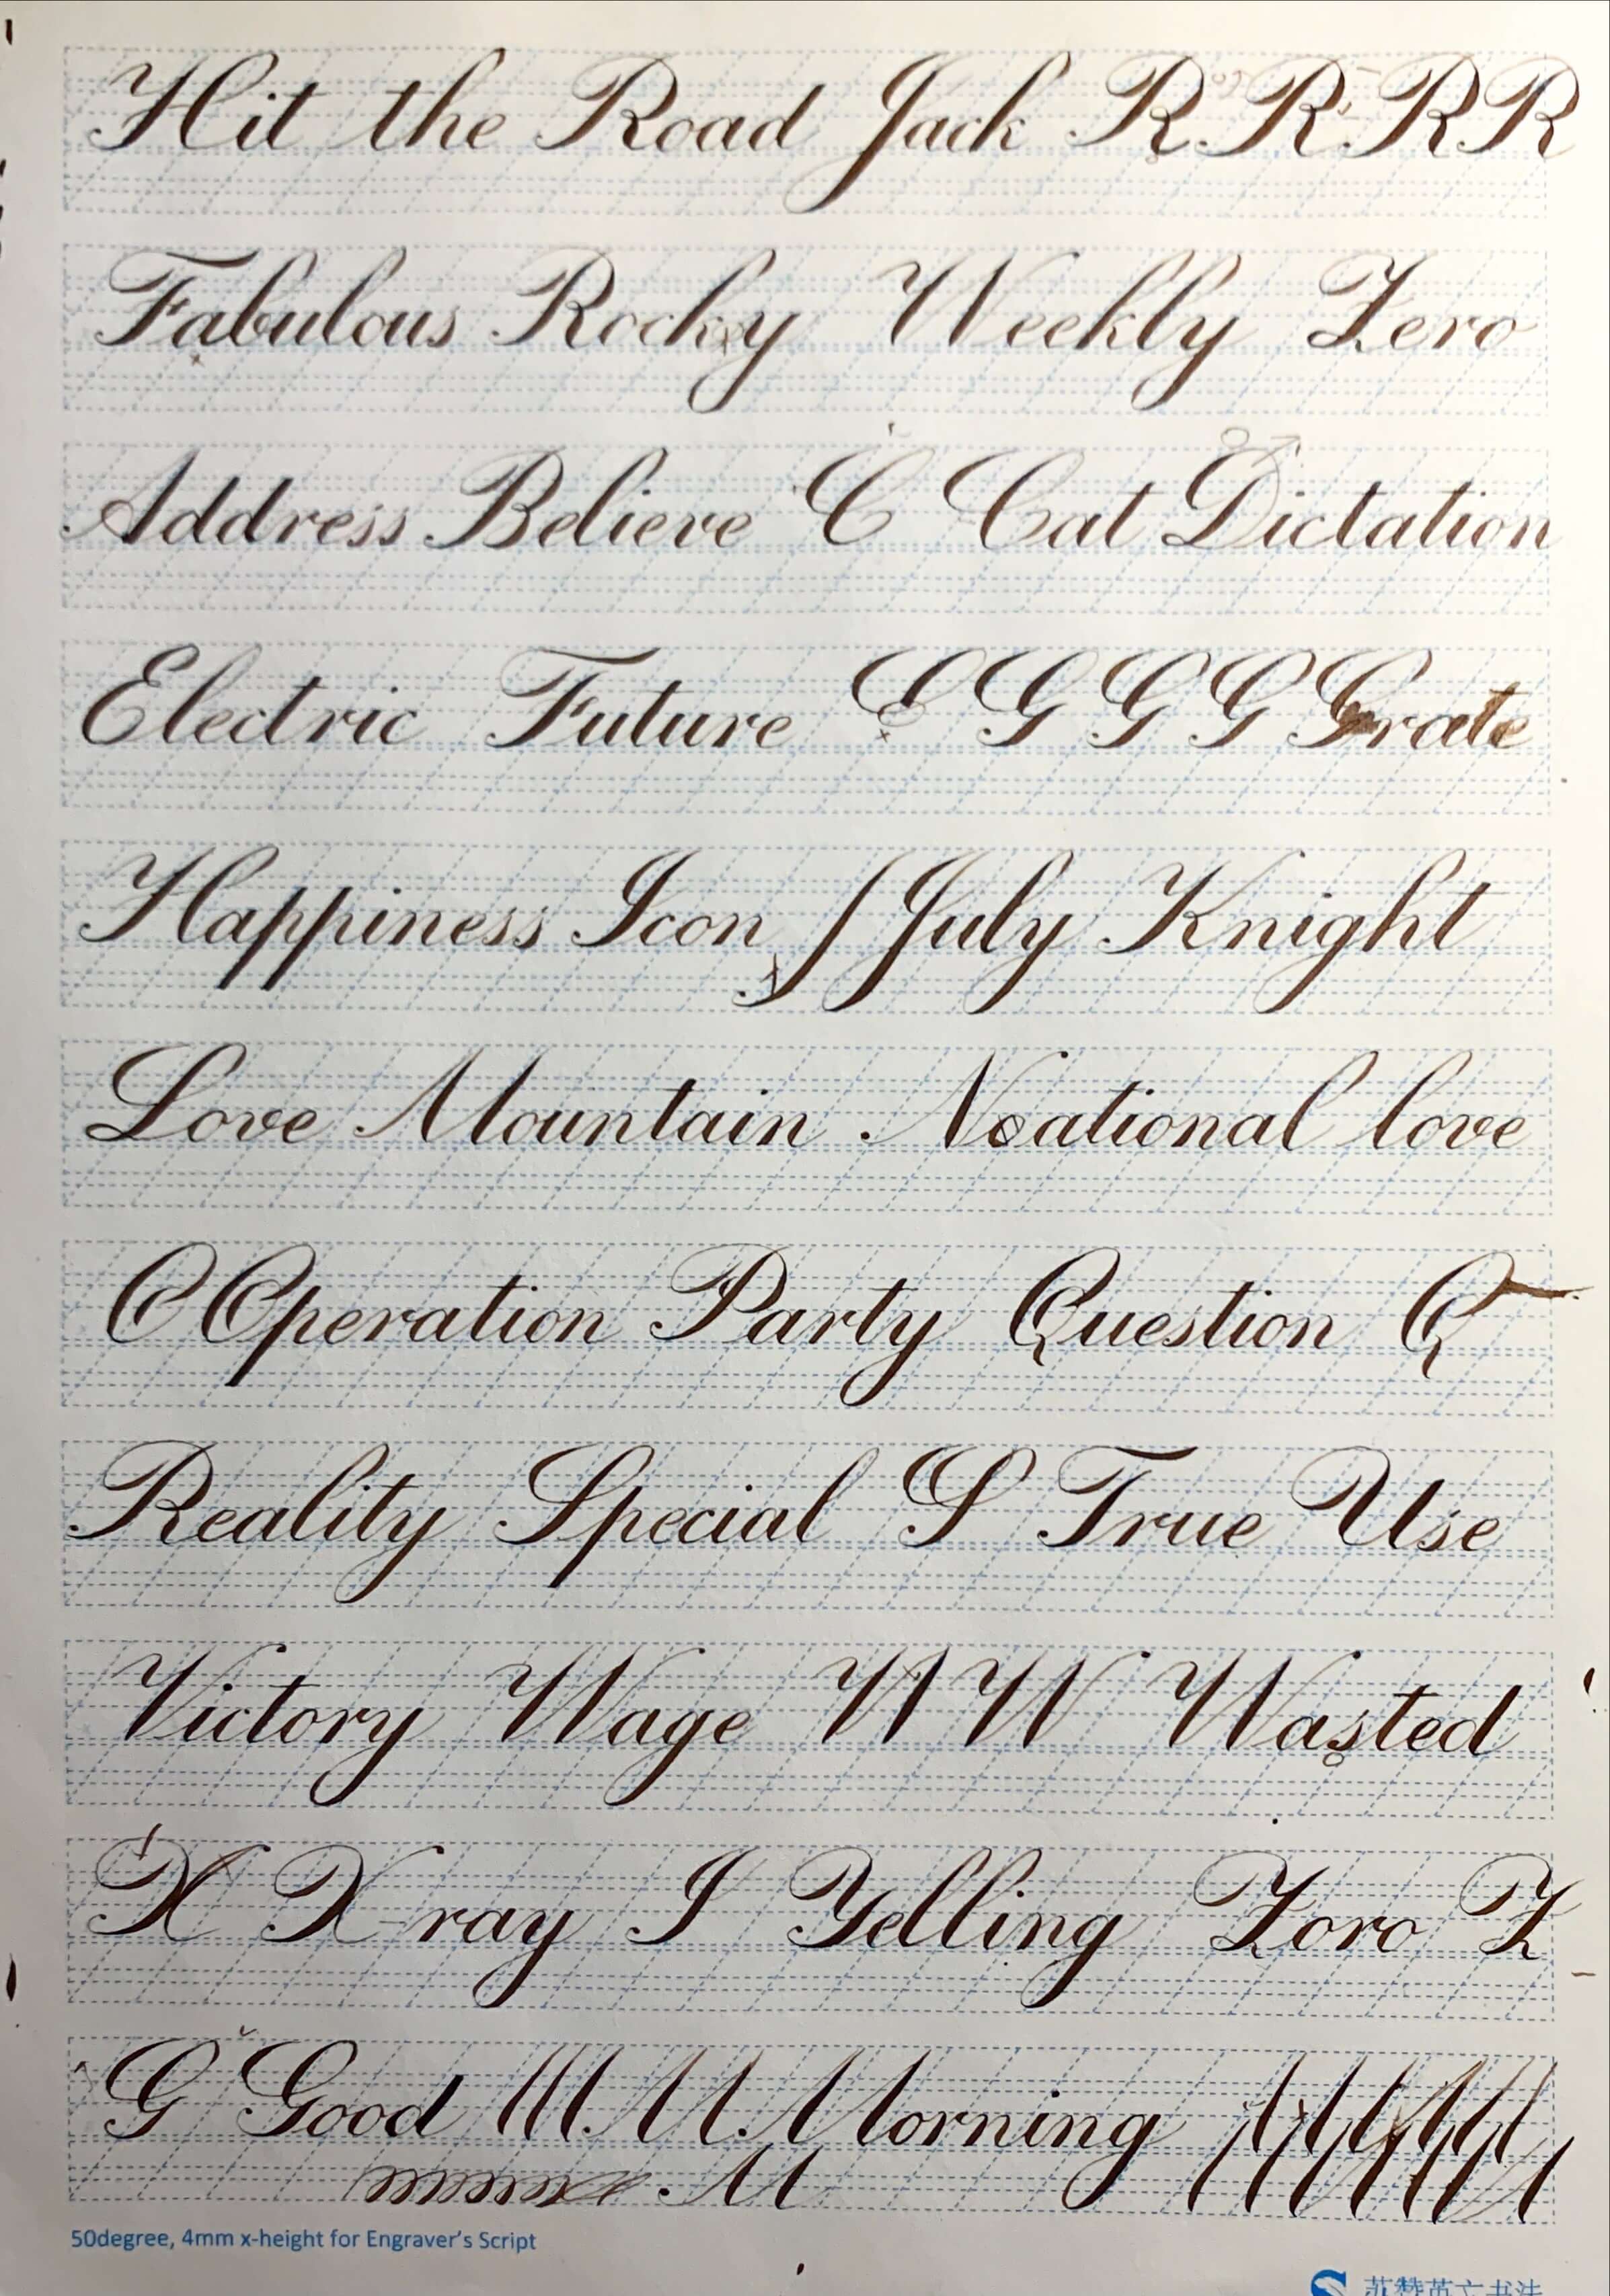 Hit the Road Jack R R R R
Fabulous Rocky Weekly Zero
Address Believe C Cat Dictation
Electric Future G G G G Grate
Happiness Icon J July Knight
Love Mountain Noational love
O Operation Party Question Q
Reality Special S True Use
Victory Wage W W Wasted
X X-ray I Yelling Zoro Z
G Good M M Morning
M
50degree, 4mm x-height for Engraver's Script
苏赞英文书法